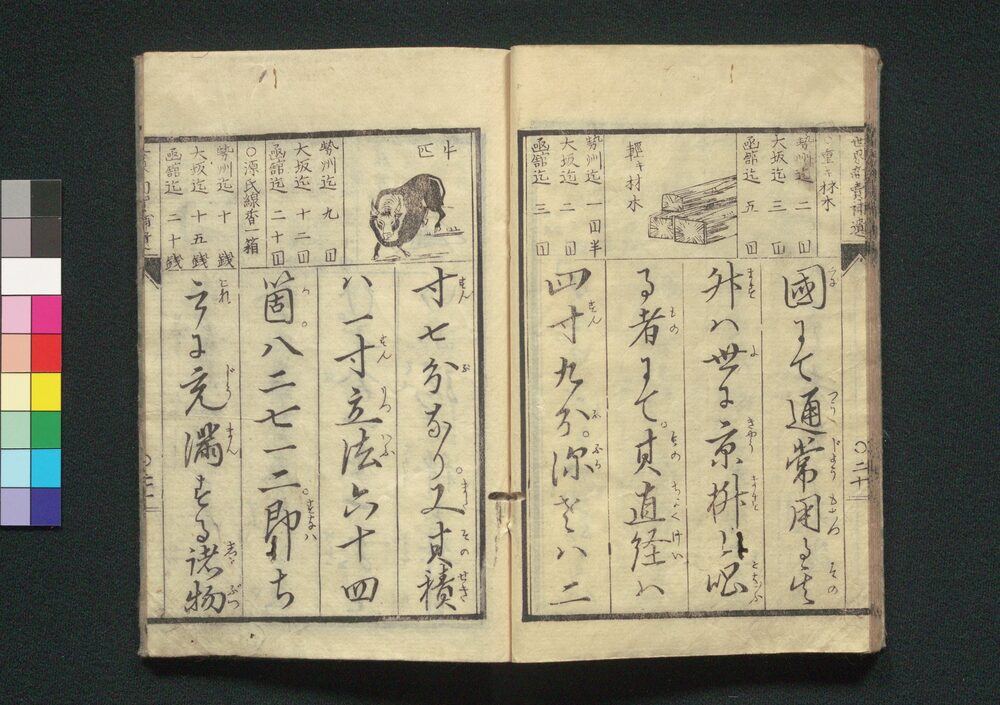 世界商賣補遺
重キ材木
勢州迄 二 円
大坂迄 三 円
凾舘迄 五 円
輕キ材木
勢州迄 一円半
大坂迄 二 円
凾舘迄 三 円
國にて通常用る其
舛ハ世に京桝と唱
る者にて其直経ハ
四寸九分。深さハ二
〇二十
牛 匹
勢州迄 九 円
大坂迄 十二円
凾舘迄 二十円
〇源氏線香一箱
勢州迄 十 銭
大坂迄 十五銭
凾舘迄 二十銭
寸七分なり。又其積
ハ一寸立法六十四
箇。八二七一二。即ち
之に充滿する諸物